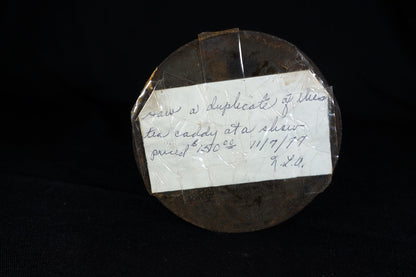 saw a duplicate of this
tea caddy at a show
priced $150.00 11/7/99